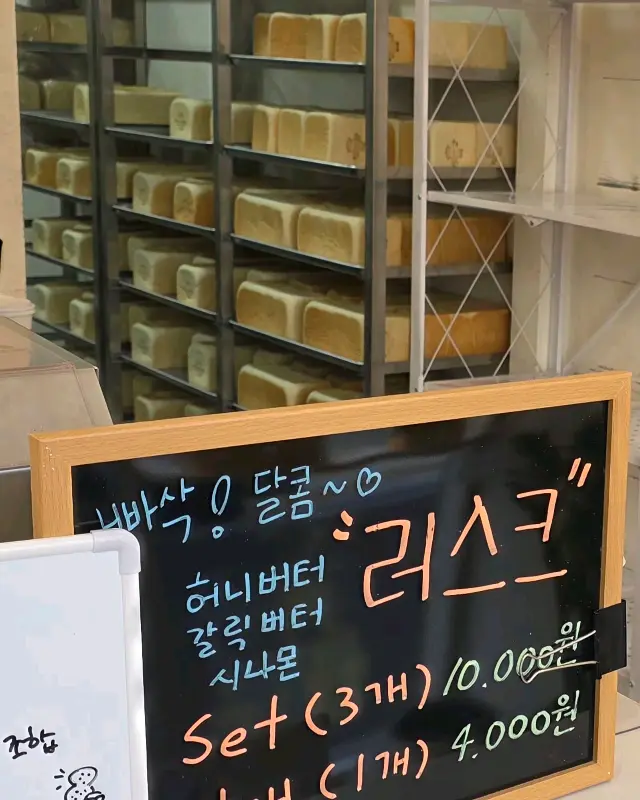 빠삭! 달콤~♡
"러스크"
허니버터
갈릭버터
시나몬
Set (3개) 10.000원
(1개) 4.000원
조합